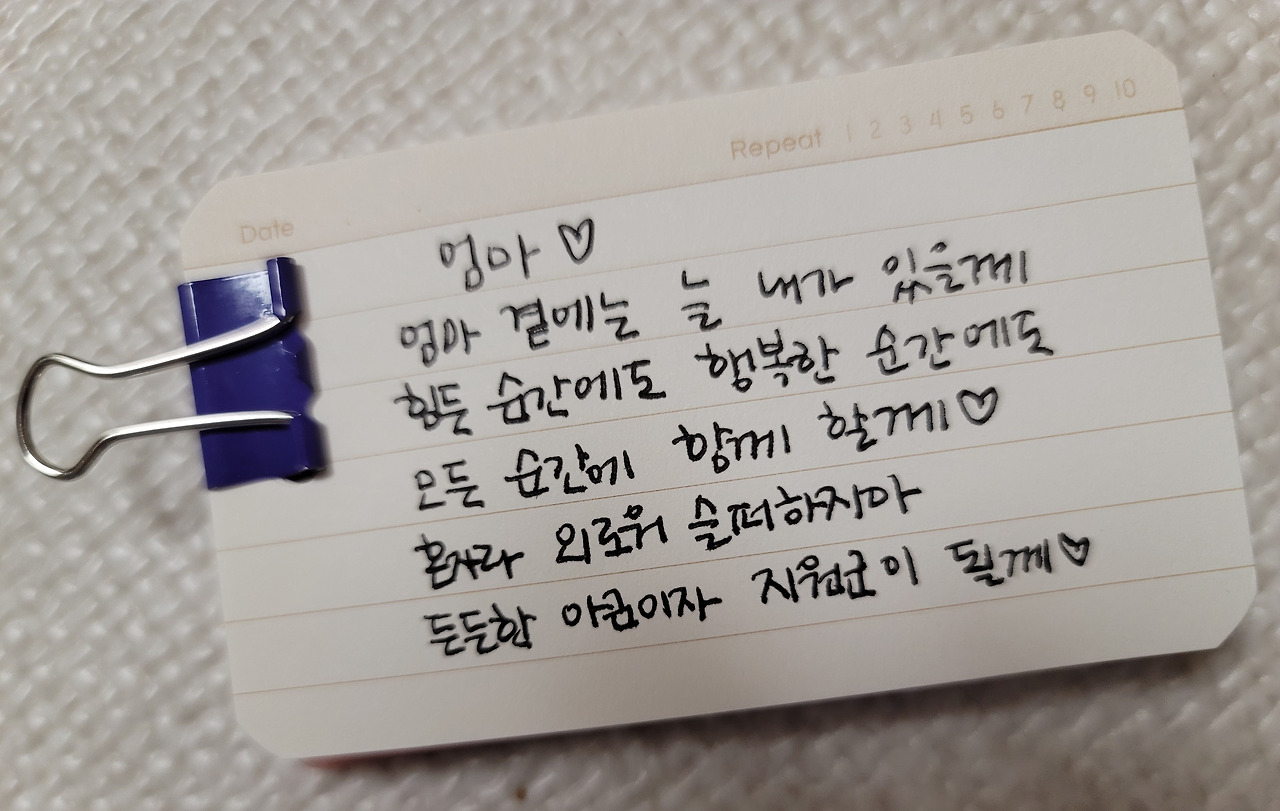 Repeat 1 2 3 4 5 6 7 8 9 10
Date
엄마 ♡
엄마 곁에는 늘 내가 있을께
힘든 순간에도 행복한 순간에도
모든 순간에 함께 할께♡
혼자라 외로워 슬퍼하지마
든든한 아군이자 지원군이 될께♡